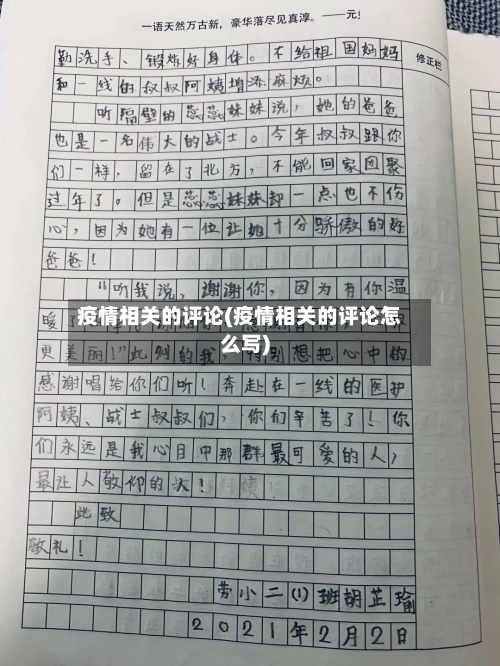 一语天然万古新，豪华落尽见真淳。——元好
修正栏
勤洗手、锻炼好身体。不给祖国妈妈
和一线的叔叔阿姨增添麻烦。
听隔壁的蕊蕊妹妹说，她的爸爸
也是一名伟大的战士。今年叔叔跟你
们一样，留在了北方，不能回家团聚
过年了。但是蕊蕊妹妹却一点也不伤
心，因为她有一位让她十分骄傲的好
爸爸！
"听我说，谢谢你，因为有你温
疫情相关的评论(疫情相关的评论怎
么写)
暖了
更美丽！"此刻的我 特别想把心中的
感谢唱给你们听！奔赴在一线的医护
阿姨、战士叔叔们，你们辛苦了！你
们永远是我心目中那群最可爱的人，
最让人敬仰的人！
此致
敬礼！
劳小二(1)班胡芷瑜
2021年2月2日